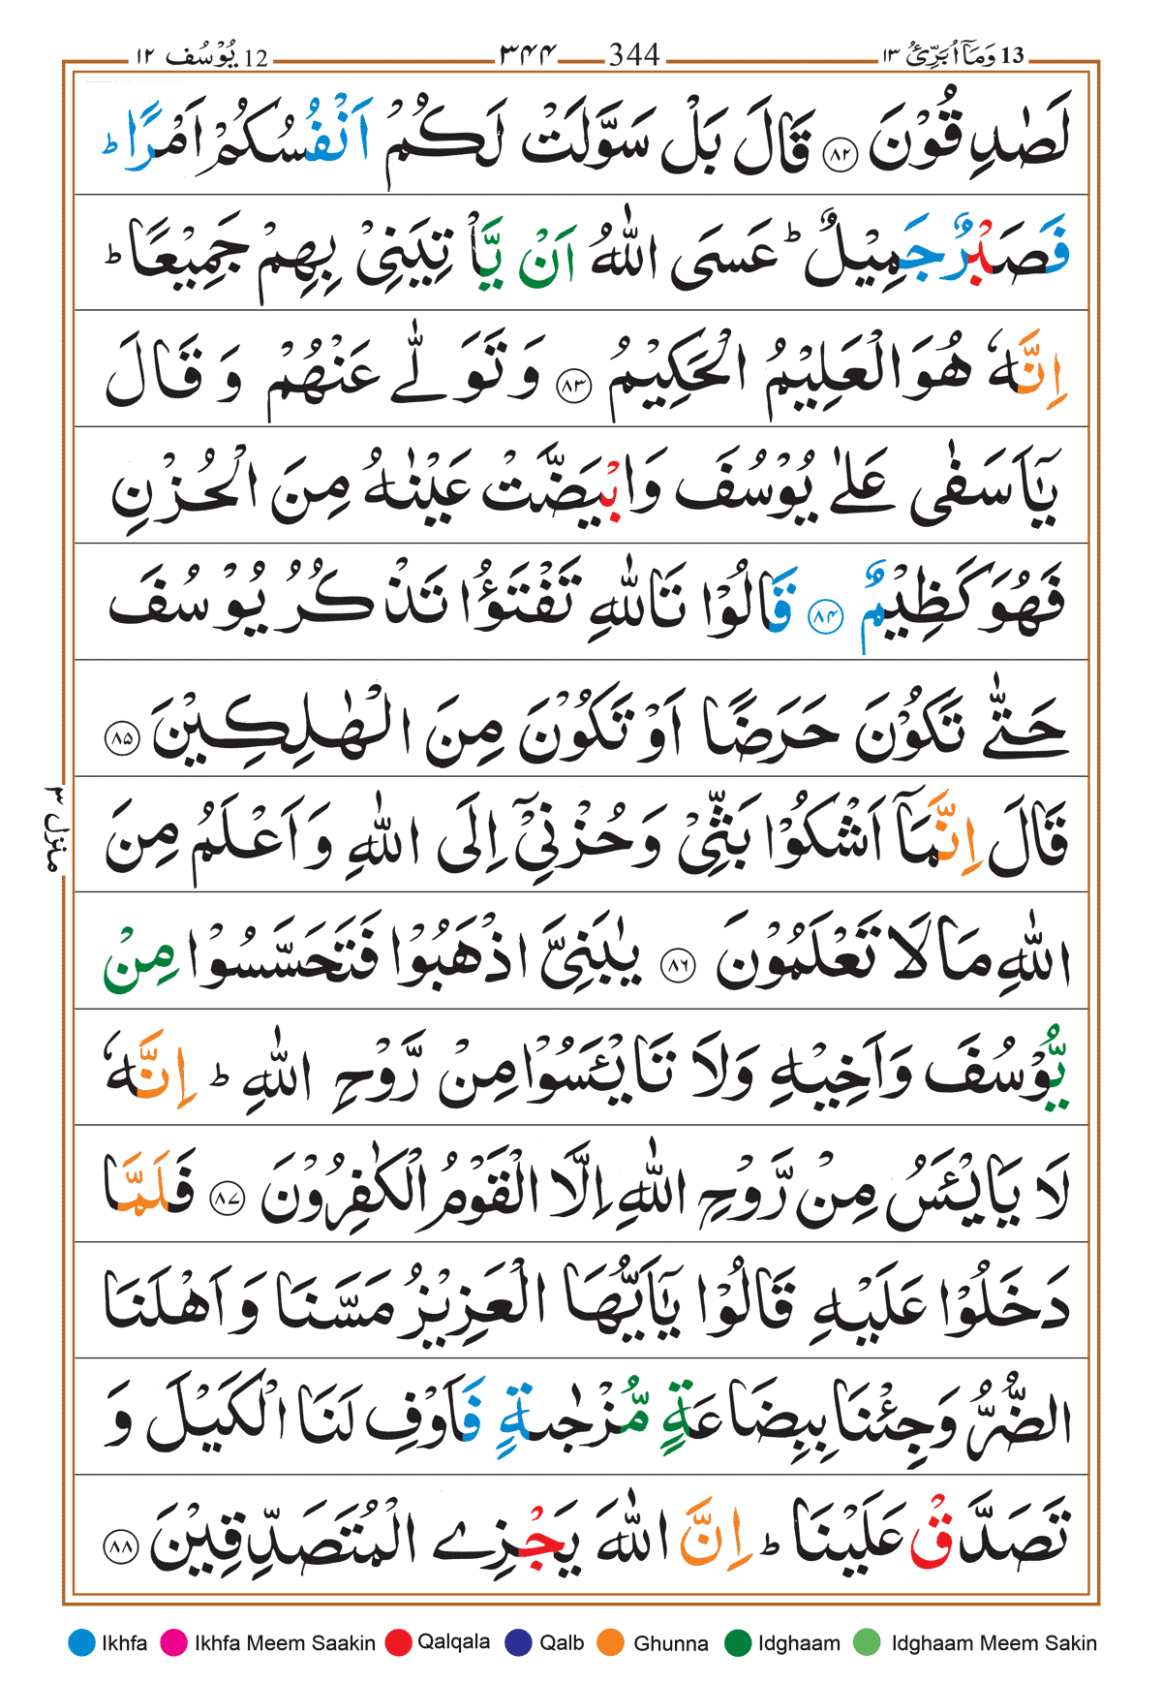 13 وَمَاۤ اُبَرِّئُ ۱۳ 344 ۳۴۴ 12 يُوْسُف ۱۲
لَصٰدِقُوْنَ ۸۲ قَالَ بَلْ سَوَّلَتْ لَكُمْ اَنْفُسُكُمْ اَمْرًا ؕ
فَصَبْرٌ جَمِيْلٌ ؕ عَسَى اللّٰهُ اَنْ يَّاْتِيَنِىْ بِهِمْ جَمِيْعًا ؕ
اِنَّهٗ هُوَ الْعَلِيْمُ الْحَكِيْمُ ۸۳ وَتَوَلّٰى عَنْهُمْ وَقَالَ
يٰۤاَسَفٰى عَلٰى يُوْسُفَ وَابْيَضَّتْ عَيْنٰهُ مِنَ الْحُزْنِ
فَهُوَ كَظِيْمٌ ۸۴ قَالُوْا تَاللّٰهِ تَفْتَؤُا تَذْكُرُ يُوْسُفَ
حَتّٰى تَكُوْنَ حَرَضًا اَوْ تَكُوْنَ مِنَ الْهٰلِكِيْنَ ۸۵
قَالَ اِنَّمَاۤ اَشْكُوْا بَثِّىْ وَحُزْنِىْۤ اِلَى اللّٰهِ وَاَعْلَمُ مِنَ
اللّٰهِ مَا لَا تَعْلَمُوْنَ ۸۶ يٰبَنِىَّ اذْهَبُوْا فَتَحَسَّسُوْا مِنْ
يُّوْسُفَ وَاَخِيْهِ وَلَا تَايْـَٔسُوْا مِنْ رَّوْحِ اللّٰهِ ؕ اِنَّهٗ
لَا يَايْـَٔسُ مِنْ رَّوْحِ اللّٰهِ اِلَّا الْقَوْمُ الْكٰفِرُوْنَ ۸۷ فَلَمَّا
دَخَلُوْا عَلَيْهِ قَالُوْا يٰۤاَيُّهَا الْعَزِيْزُ مَسَّنَا وَاَهْلَنَا
الضُّرُّ وَجِئْنَا بِبِضَاعَةٍ مُّزْجٰىةٍ فَاَوْفِ لَنَا الْكَيْلَ وَ
تَصَدَّقْ عَلَيْنَا ؕ اِنَّ اللّٰهَ يَجْزِى الْمُتَصَدِّقِيْنَ ۸۸
منزل ۳
Ikhfa Ikhfa Meem Saakin Qalqala Qalb Ghunna Idghaam Idghaam Meem Sakin